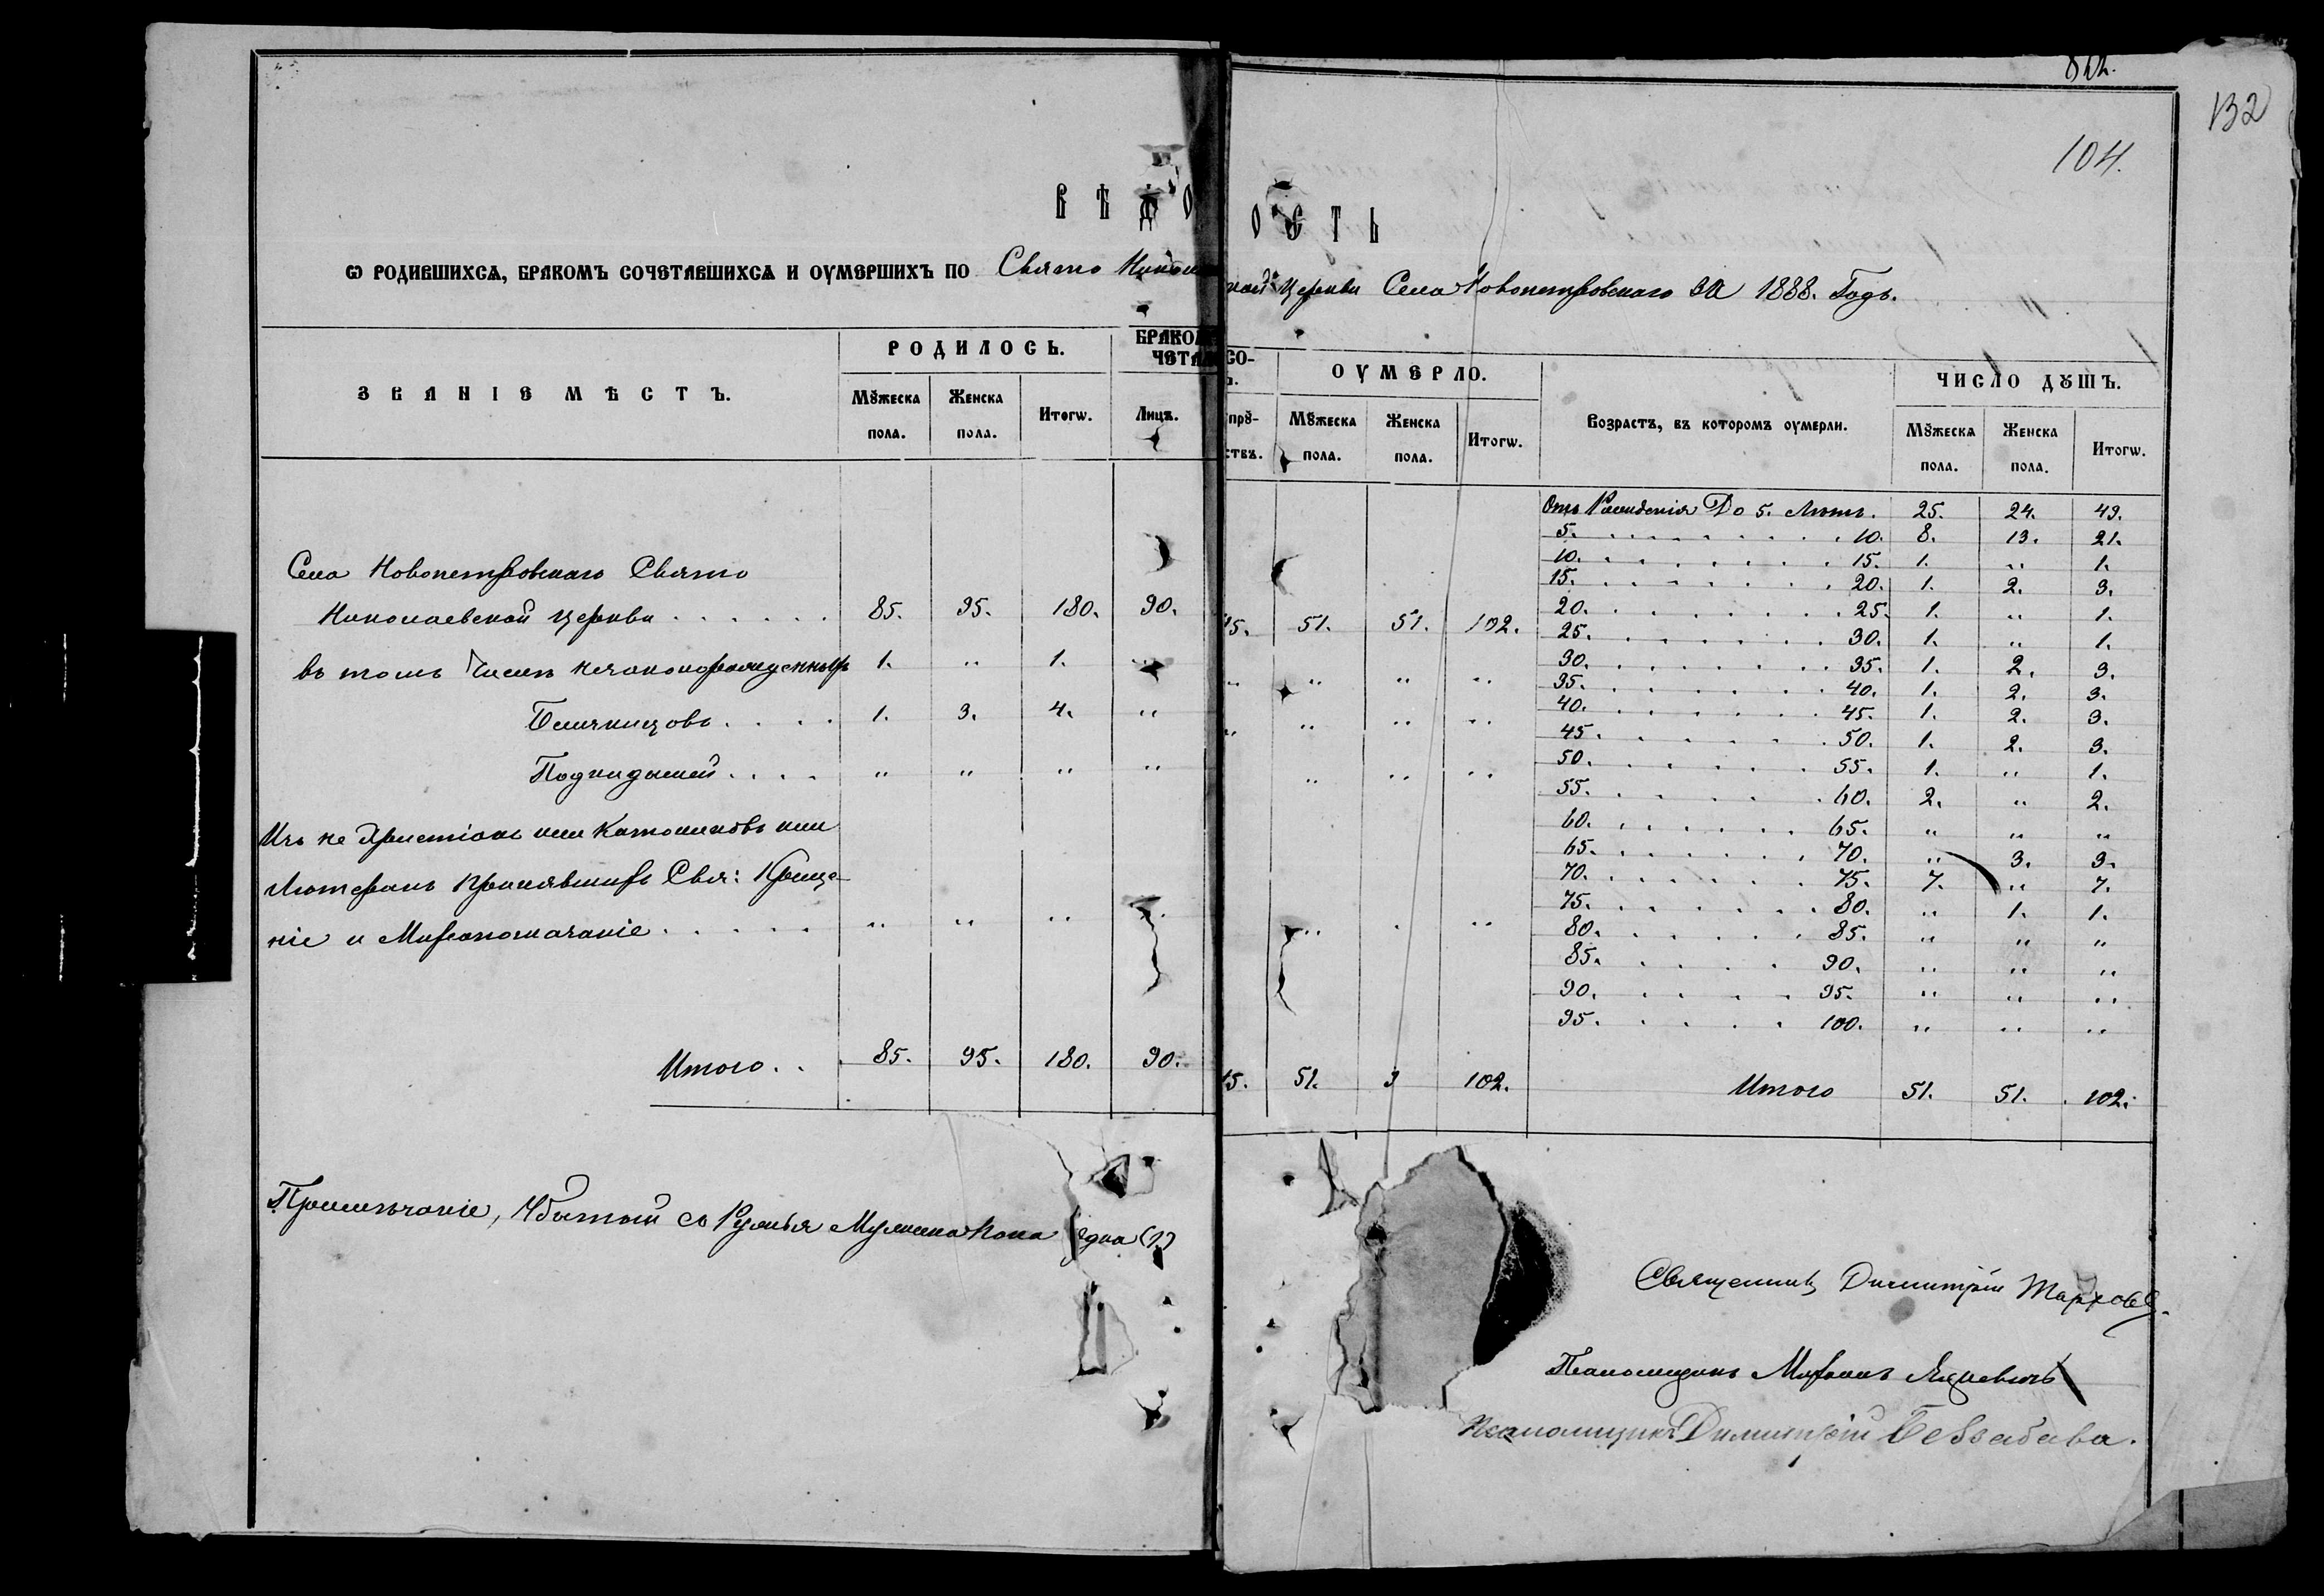 822.
132
104.
ВѢДО ОСТЬ
Ѡ РОДИВШИХСѦ, БРАКОМЪ СОЧЕТАВШИХСѦ И ОУМЕРШИХЪ ПО Свято Никола
кой Церкви Села Новопетровскаго ЗА 1888. Годъ.
ЗВАНІЕ МѢСТЪ.
РОДИЛОСЬ.
Мꙋжеска пола.
Женска пола.
Итогѡ.
БРАКОМЪ СО-
ЧЕТАЛ
Лицъ.
прꙋ-
ствъ.
ОУМЕРЛО.
Мꙋжеска пола.
Женска пола.
Итогѡ.
Возрастъ, въ которомъ оумерли.
ЧИСЛО ДꙊШЪ.
Мꙋжеска пола.
Женска пола.
Итогѡ.
Села Новопетровскаго Свято
Николаевской Церкви . . . . . . 85. 95. 180. 90. 45. 51. 51. 102.
въ томъ Числѣ незаконорожденныхъ 1. " 1. " " " " "
Близнецовъ . . . . 1. 3. 4. " " " " "
Подкидышей . . . . " " " " " " "
Изъ не Христіанъ или Католиковъ или
Лютеранъ принявшихъ Свя: Креще-
ніе и Мѵропомазаніе . . . . . " " " " " "
Итого . . 85. 95. 180. 90. 45. 51. 102.
Отъ Рожденія До 5. Лѣтъ. 25. 24. 49.
5. . . . . . . . . 10. 8. 13. 21.
10. . . . . . . . 15. 1. " 1.
15. . . . . . . . 20. 1. 2. 3.
20. . . . . . . . 25. 1. " 1.
25. . . . . . . 30. 1. " 1.
30. . . . . . . . 35. 1. 2. 3.
35. . . . . . . 40. 1. 2. 3.
40. . . . . . . 45. 1. 2. 3.
45. . . . . . . 50. 1. 2. 3.
50. . . . . . . 55. 1. " 1.
55. . . . . . 60. 2. " 2.
60. . . . . . . 65. " " "
65. . . . . . . 70. " 3. 3.
70. . . . . . . 75. 7. " 7.
75. . . . . . . 80. " 1. 1.
80. . . . . . . 85. " " "
85. . . . . 90. " " "
90. . . . . 95. " " "
95. . . . . 100. " " "
Итого 51. 51. 102.
Примѣчаніе, Убитый съ Ружья Мужеска пола една (1.)
Священникъ Димитрій Тарховъ.
Псаломщикъ Михаилъ
Псаломщикъ Димитрій Беззабава.